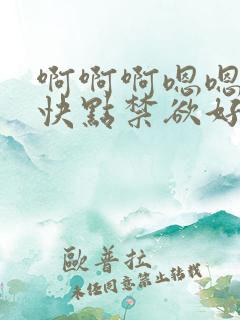 啊啊啊嗯嗯
快點禁欲好
歐普拉
未經同意禁止轉載